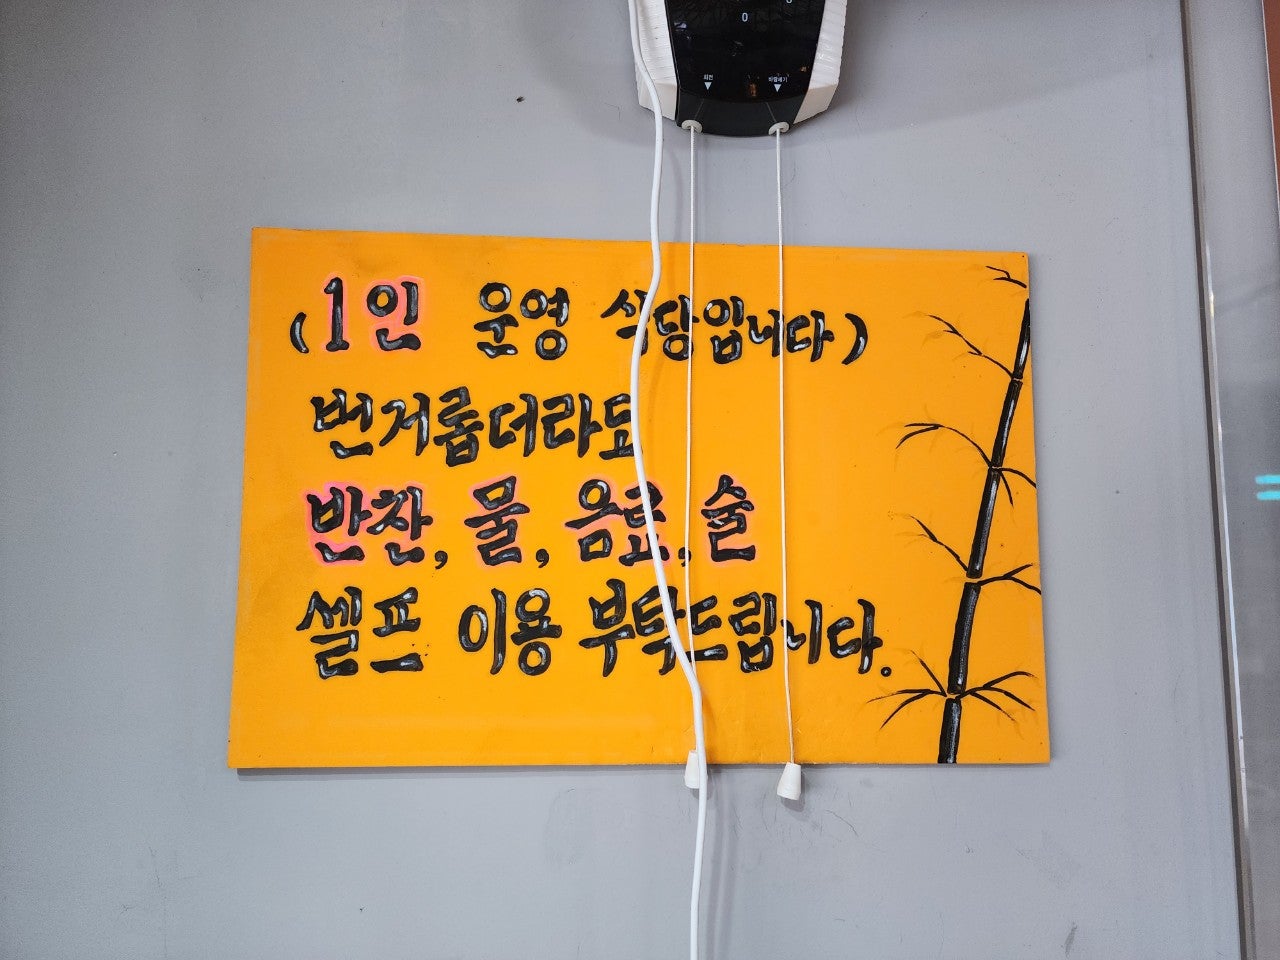 0
회전
바람세기
(1인 운영 식당입니다)
번거롭더라도
반찬, 물, 음료, 술
셀프 이용 부탁드립니다.